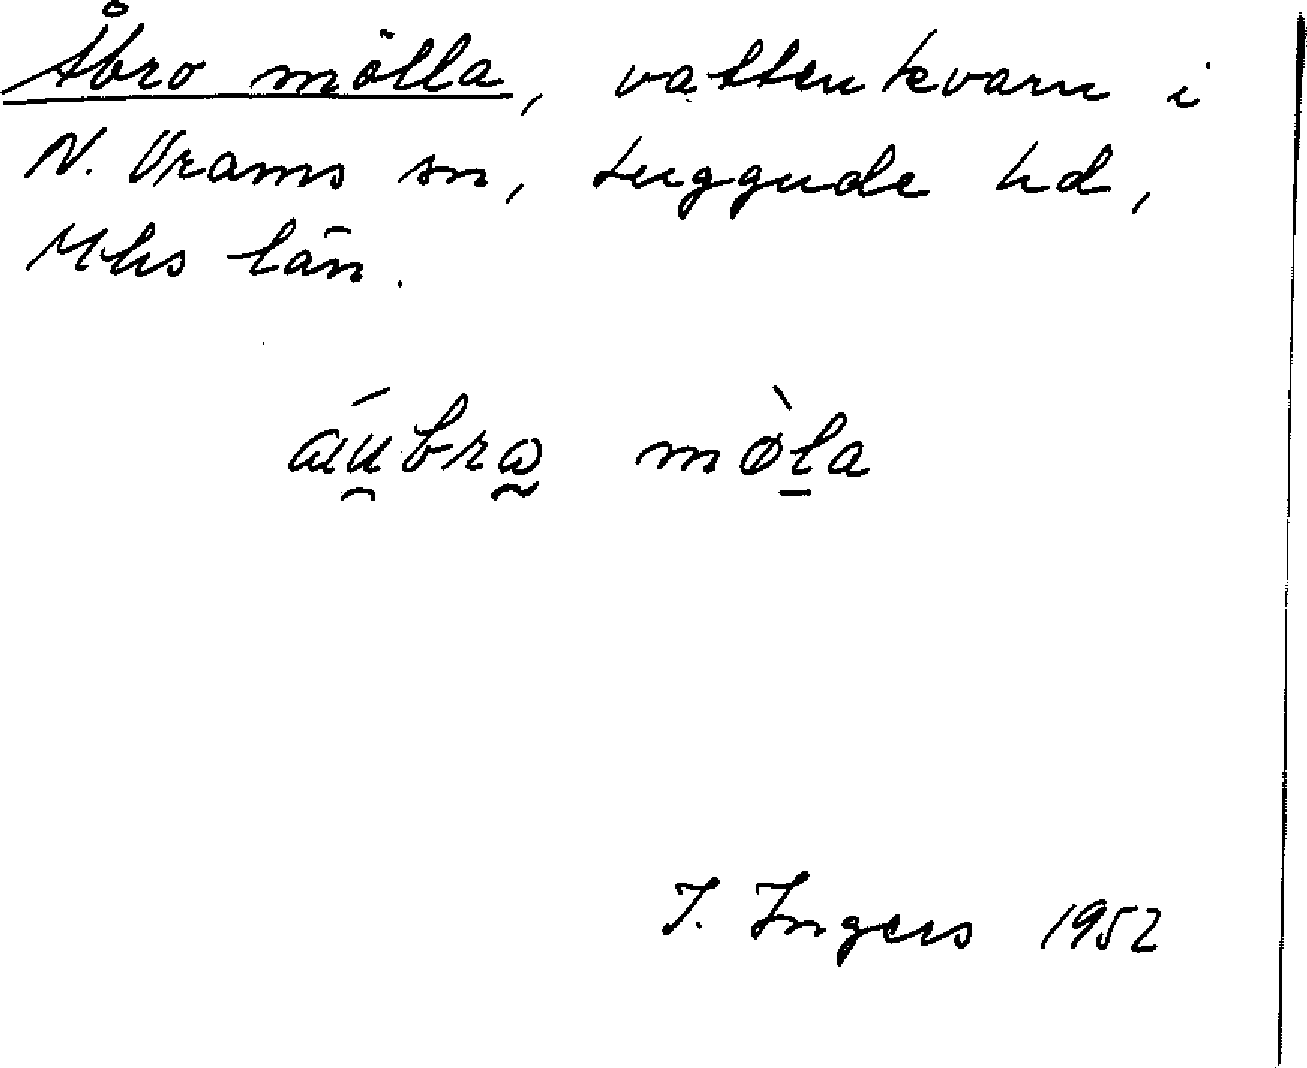 Åbro mölla, vattenkvarn i
N. Vrams sn, Luggude hd,
Mhs län.
áu̯brɷ̰ mø̀l̠a
I. Ingers 1952